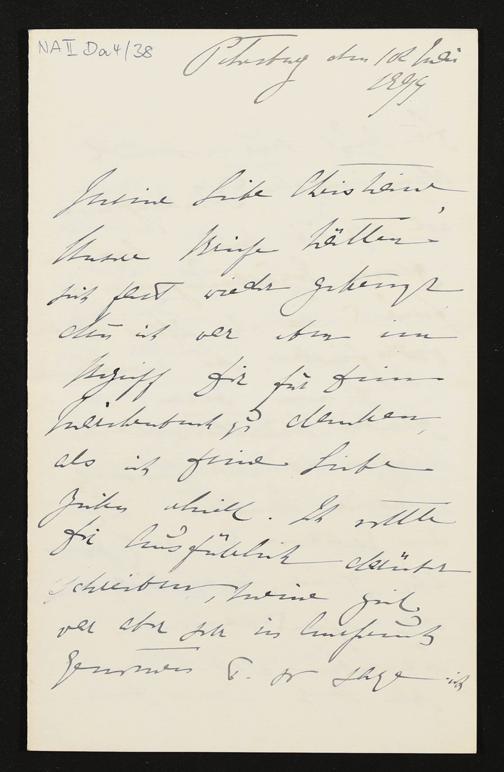 NA II Da 4/38
Petersburg den 18 Juni
1899
Meine liebe Christiane,
Unsere Briefe hätten
sich fast wieder gekreuzt
denn ich war eben im
Begriff Dir für Dein
Märchenbuch zu danken,
als ich Deine liebe
Zeilen erhielt. Ich wollte
Dir ausführlich darüber
schreiben, meine Zeit
war aber sehr in Anspruch
genommen u. so sage ich